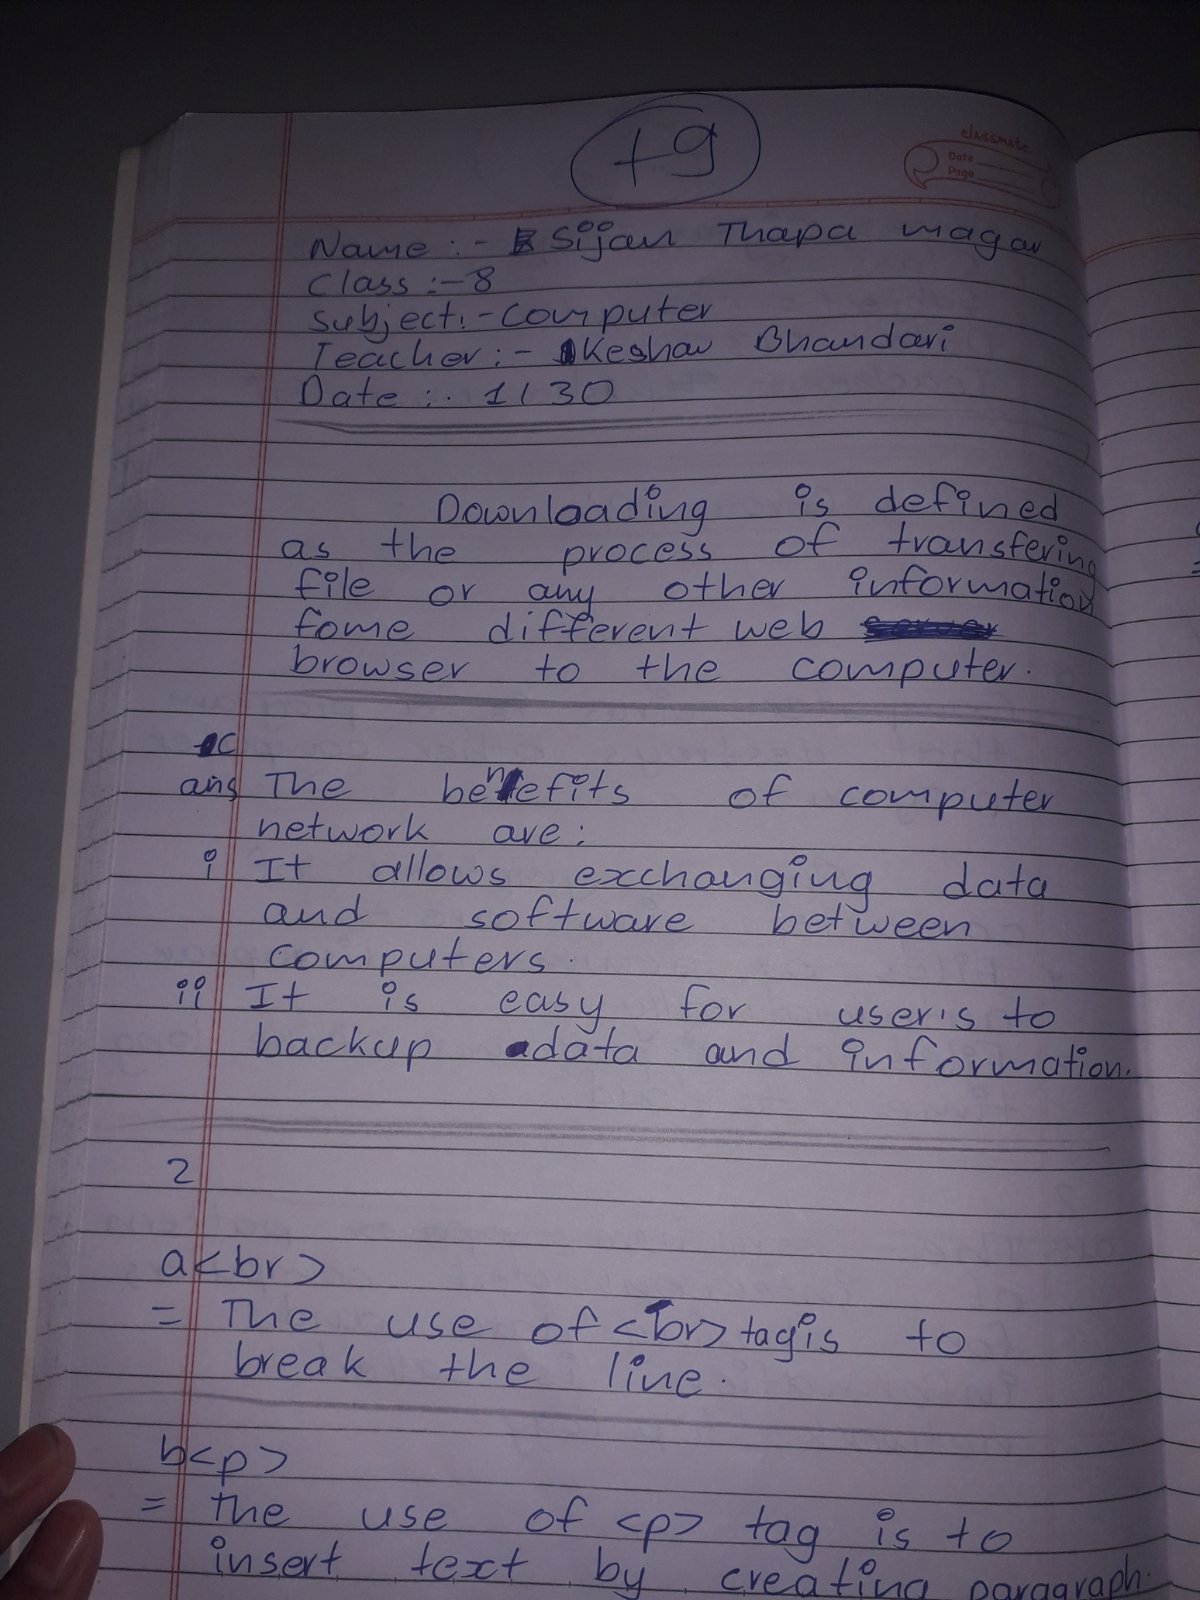 +9
classmate
Date
Page
Name :- Sijan Thapa magar
Class :- 8
Subject:- Computer
Teacher :- Keshav Bhandari
Date :- 1/30
Downloading is defined
as the process of transfering
file or any other information
fome different web
browser to the computer.
c
ans The benefits of computer
network are:
i It allows exchanging data
and software between
computers.
ii It is easy for user's to
backup data and information.
2
a<br>
= The use of <br> tag is to
break the line.
b<p>
= The use of <p> tag is to
insert text by creating paragraph.